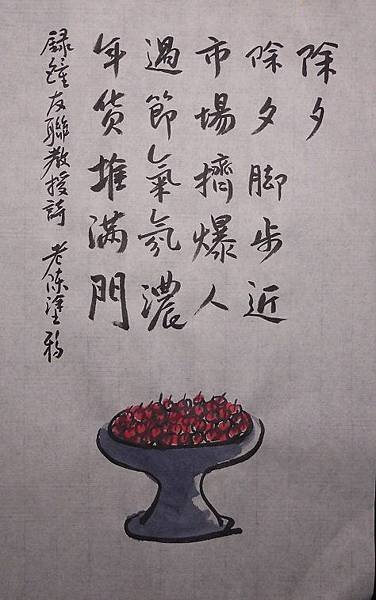 除夕
除夕脚步近
市場擠爆人
過節氣氛濃
年货堆滿門
録鐘友聯教授詩 老陈塗鴉